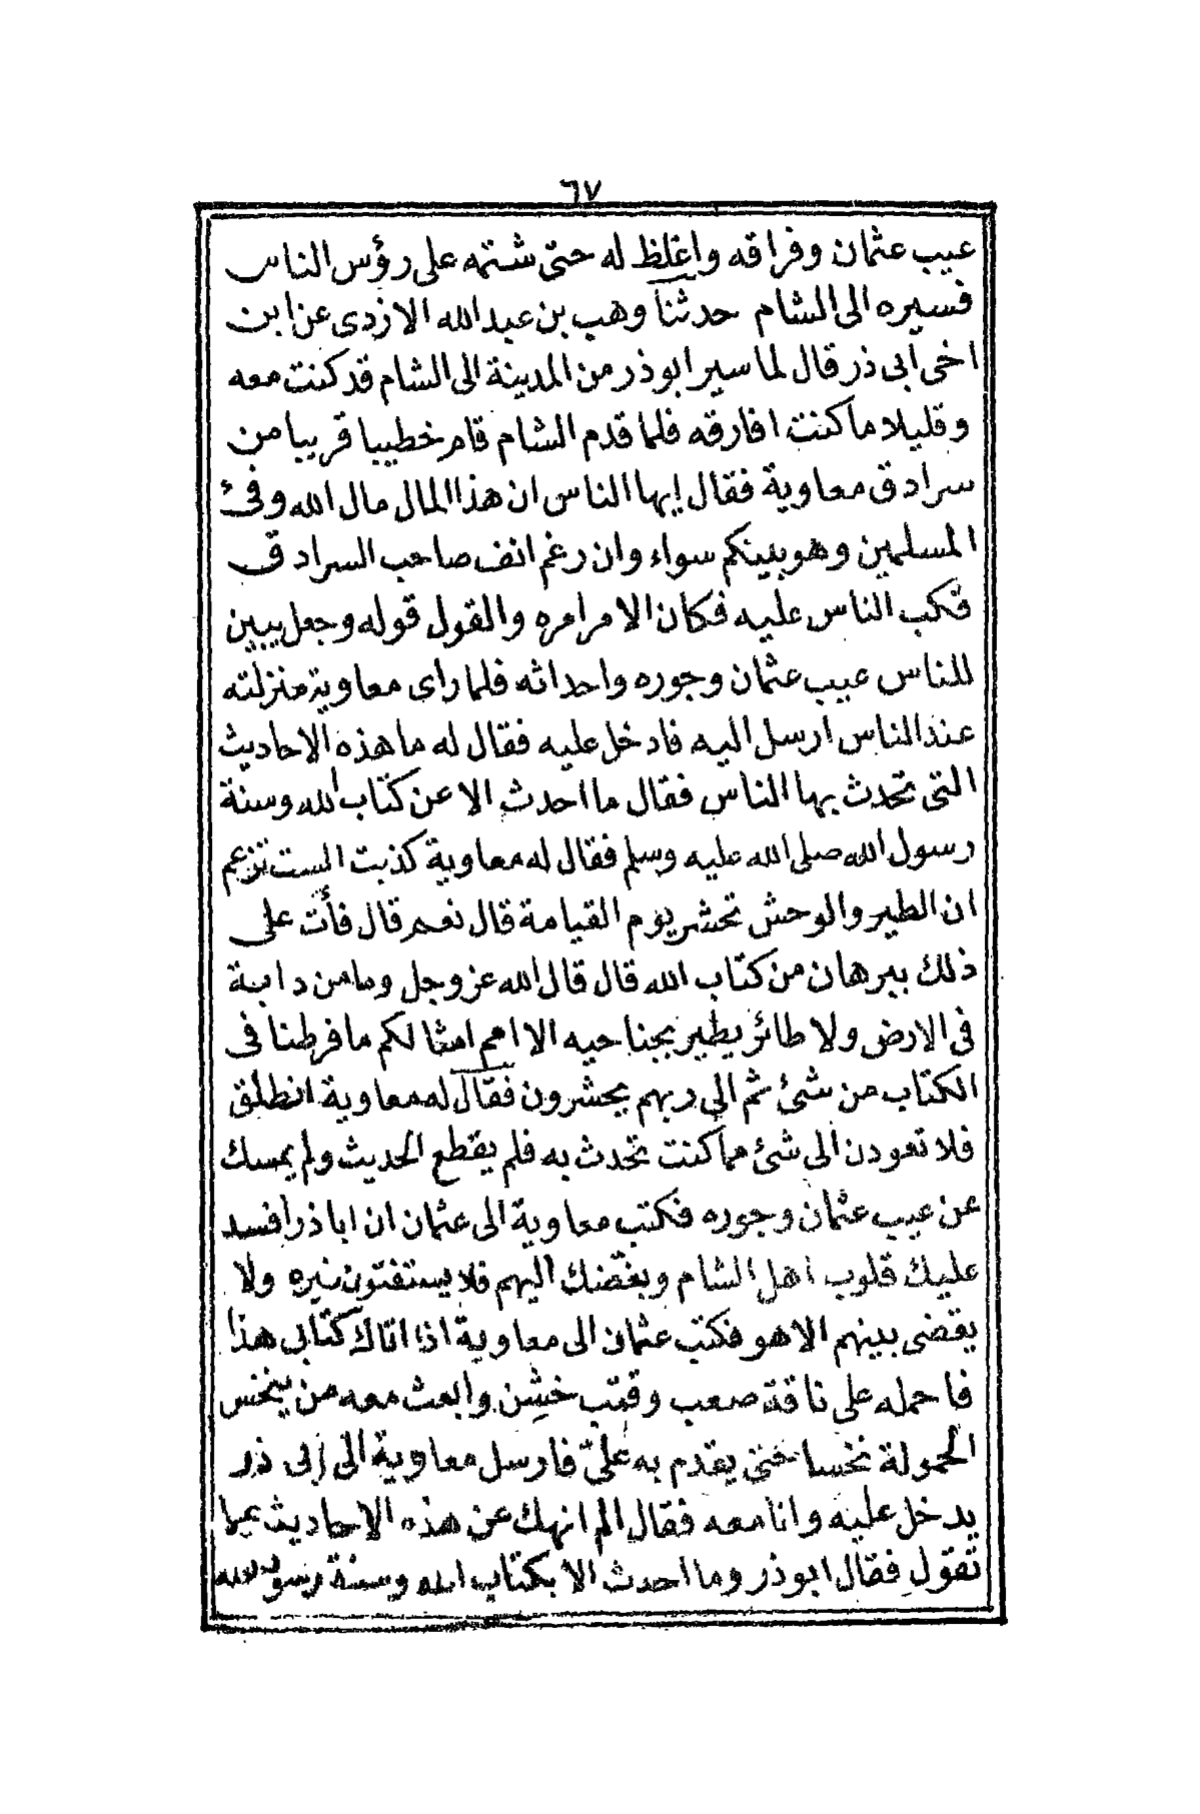 ٦٧
عيب عثمان وفراقه واغلظ له حتى شتمه على رؤس الناس
فسيره الى الشام حدثنا وهب بن عبد الله الازدى عن ابن
اخى ابى ذر قال لما سير ابو ذر من المدينة الى الشام قد كنت معه
وقليلا ما كنت افارقه فلما قدم الشام قام خطيبا قريبا من
سرادق معاوية فقال ايها الناس ان هذا المال مال الله وفئ
المسلمين وهو بينكم سواء وان رغم انف صاحب السرادق
فكب الناس عليه فكان الامر امره والقول قوله وجعل يبين
للناس عيب عثمان وجوره واحداثه فلما راى معاوية منزلته
عند الناس ارسل اليه فادخل عليه فقال له ما هذه الاحاديث
التى تحدث بها الناس فقال ما احدث الا عن كتاب الله وسنة
رسول الله صلى الله عليه وسلم فقال له معاوية كذبت الست تزعم
ان الطير والوحش تحشر يوم القيامة قال نعم قال فأت على
ذلك ببرهان من كتاب الله قال قال الله عز وجل وما من دابة
فى الارض ولا طائر يطير بجناحيه الا امم امثالكم ما فرطنا فى
الكتاب من شئ ثم الى ربهم يحشرون فقال له معاوية انطلق
فلا تعودن الى شئ مما كنت تحدث به فلم يقطع الحديث ولم يمسك
عن عيب عثمان وجوره فكتب معاوية الى عثمان ان ابا ذر افسد
عليك قلوب اهل الشام وبغضك اليهم فلا يستفتون غيره ولا
يقضى بينهم الا هو فكتب عثمان الى معاوية اذا اتاك كتابى هذا
فاحمله على ناقة صعب وقتب خشن وابعث معه من ينخس
الحمولة نخسا حتى يقدم به علىّ فارسل معاوية الى ابى ذر
يدخل عليه وانا معه فقال الم انهك عن هذه الاحاديث عما
تقول فقال ابو ذر وما احدث الا بكتاب الله وسنة رسول الله